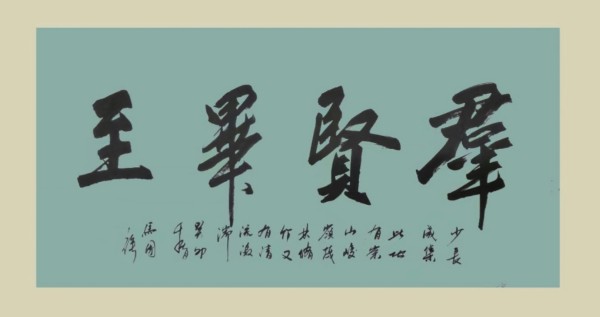 羣賢畢至
少長
咸集
此地
有崇
山峻
嶺茂
林脩
竹又
有清
流激
湍
癸卯
馬國